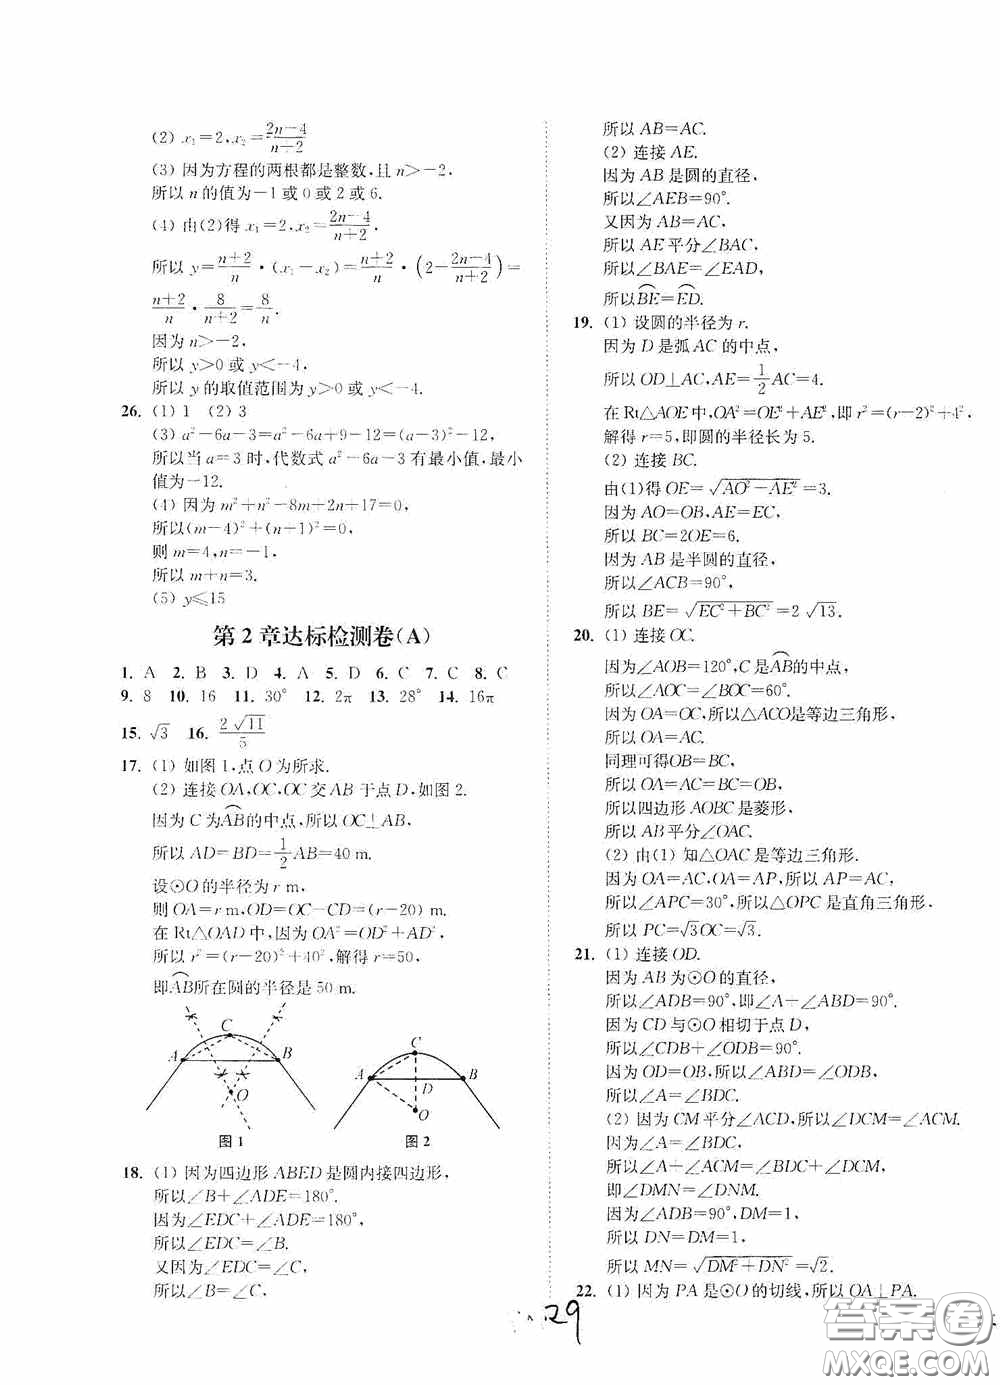 (2) x₁=2,x₂=(2n-4)/(n+2)
(3) 因为方程的两根都是整数,且 n>-2,
所以 n 的值为-1 或 0 或 2 或 6.
(4) 由(2)得 x₁=2,x₂=(2n-4)/(n+2).
所以 y=(n+2)/n·(x₁-x₂)=(n+2)/n·(2-(2n-4)/(n+2))=
(n+2)/n·8/(n+2)=8/n.
因为 n>-2,
所以 y>0 或 y<-4,
所以 y 的取值范围为 y>0 或 y<-4.
26. (1) 1 (2) 3
(3) a²-6a-3=a²-6a+9-12=(a-3)²-12,
所以当 a=3 时,代数式 a²-6a-3 有最小值,最小
值为-12.
(4) 因为 m²+n²-8m+2n+17=0,
所以(m-4)²+(n+1)²=0,
则 m=4,n=-1,
所以 m+n=3.
(5) y≤15
第 2 章达标检测卷(A)
1. A 2. B 3. D 4. A 5. D 6. C 7. C 8. C
9. 8 10. 16 11. 30° 12. 2π 13. 28° 14. 16π
15. √3 16. 2√11/5
17. (1) 如图 1,点 O 为所求.
(2) 连接 OA,OC,OC 交 AB 于点 D,如图 2.
因为 C 为⌒AB的中点,所以 OC⊥AB,
所以 AD=BD=1/2AB=40 m.
设⊙O 的半径为 r m,
则 OA=r m,OD=OC-CD=(r-20) m.
在 Rt△OAD 中,因为 OA²=OD²+AD²,
所以 r²=(r-20)²+40²,解得 r=50,
即⌒AB所在圆的半径是 50 m.
C
A B O
图 1
C
A D B
O
图 2
18. (1) 因为四边形 ABED 是圆内接四边形,
所以∠B+∠ADE=180°.
因为∠EDC+∠ADE=180°,
所以∠EDC=∠B.
又因为∠EDC=∠C,
所以∠B=∠C,
所以 AB=AC.
(2) 连接 AE.
因为 AB 是圆的直径,
所以∠AEB=90°.
又因为 AB=AC,
所以 AE 平分∠BAC,
所以∠BAE=∠EAD,
所以⌒BE=⌒ED.
19. (1) 设圆的半径为 r.
因为 D 是弧 AC 的中点,
所以 OD⊥AC,AE=1/2AC=4.
在 Rt△AOE 中,OA²=OE²+AE²,即 r²=(r-2)²+4²,
解得 r=5,即圆的半径长为 5.
(2) 连接 BC.
由(1)得 OE=√(AO²-AE²)=3.
因为 AO=OB,AE=EC,
所以 BC=2OE=6.
因为 AB 是半圆的直径,
所以∠ACB=90°,
所以 BE=√(EC²+BC²)=2√13.
20. (1) 连接 OC.
因为∠AOB=120°,C 是⌒AB的中点,
所以∠AOC=∠BOC=60°.
因为 OA=OC,所以△ACO是等边三角形,
所以 OA=AC.
同理可得OB=BC,
所以 OA=AC=BC=OB,
所以四边形 AOBC 是菱形,
所以 AB 平分∠OAC.
(2) 由(1) 知△OAC 是等边三角形.
因为 OA=AC,OA=AP,所以 AP=AC,
所以∠APC=30°,所以△OPC 是直角三角形.
所以 PC=√3OC=√3.
21. (1) 连接 OD.
因为 AB 为⊙O 的直径,
所以∠ADB=90°,即∠A+∠ABD=90°.
因为 CD 与⊙O 相切于点 D,
所以∠CDB+∠ODB=90°.
因为 OD=OB,所以∠ABD=∠ODB,
所以∠A=∠BDC.
(2) 因为 CM 平分∠ACD,所以∠DCM=∠ACM.
因为∠A=∠BDC,
所以∠A+∠ACM=∠BDC+∠DCM,
即∠DMN=∠DNM.
因为∠ADB=90°,DM=1,
所以 DN=DM=1,
所以 MN=√(DM²+DN²)=√2.
22. (1) 因为 PA 是⊙O 的切线,所以 OA⊥PA.
29
答案圈
MXQE.COM